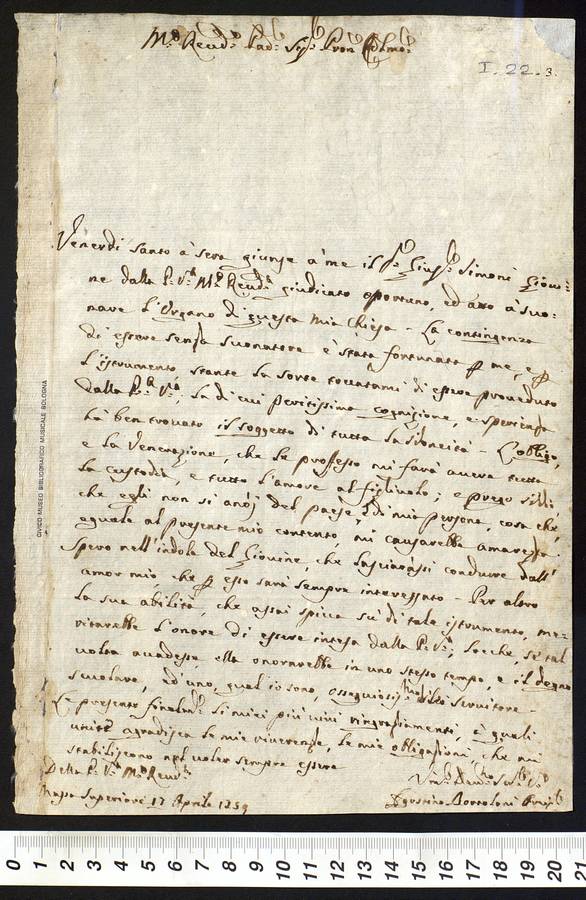 M.º Rev.do Pad: Sig.r Pron Colmo:
I. 22. 3.
Venerdì Santo à sera giunse à me il S.r Giusp.e Simoni Giova=
ne dalla P.V. M.º Rev.da giudicato oportuno, ed atto à suo=
nare l'Organo di questa mia Chiesa - La contingenza
di essere senza suonatore è stata fortunata p me, e p
l'istrumento stante la sorte toccatami di essere proveduto
dalla P.V., la di cui peritissima cognizione, e sperienza
hà ben trovato il soggetto di tutta la idoneità - L'obligo,
e la Venerazione, che le professo mi farà avere tutta
la custodia, e tutto l'amore al figliuolo; e prego Iddio,
che egli non si anoj del paese, e di mia persona, cosa che,
eguale al presente mio contento, mi causarebbe amarezza.
Spero nell'indole del Giovine, che lasciarassi condurre dall'
amor mio, che p esso sarà sempre interessato - Per altro
la sua abilità, che assai spicca sù di tale istrumento, me=
ritarebbe l'onore di essere intesa dalla P.V., locche, se tal
volta accadesse ella onorarebbe in uno stesso tempo, e il degno
scuolaro, ed uno, qual io sono, ossequiosiss.mo di lei servitore -
Le presento finalm.e li miei più vivi ringraziamenti, à quali
unite agradisca le mie riverenze, le mie obligazioni, che mi
stabiliscono nel voler sempre essere
Della P.V. M.º Rev.da
Massa Superiore 17 Aprile 1759
Agostino Bortoloni
CIVICO MUSEO BIBLIOGRAFICO MUSICALE BOLOGNA
0 1 2 3 4 5 6 7 8 9 10 11 12 13 14 15 16 17 18 19 20 21